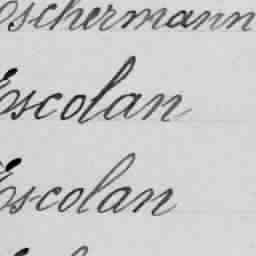 Eschermann
Escolan
Escolan